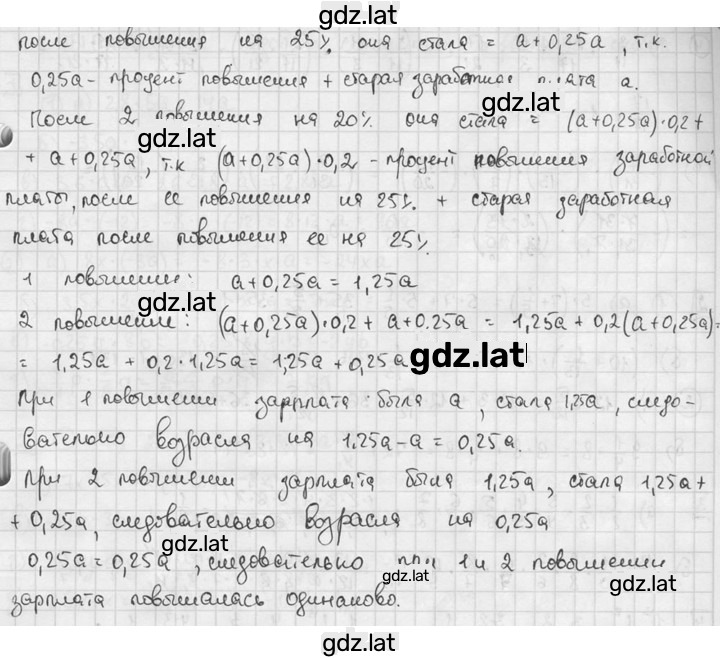 gdz.lat
после повышения на 25% она стала = a+0,25a, т.к.
0,25a - процент повышения + старая заработная плата a.
gdz.lat
После 2 повышения на 20% она стала = (a+0,25a)·0,2+
gdz.lat
+ a+0,25a, т.к (a+0,25a)·0,2 - процент повышения заработной
платы, после ее повышения на 25% + старая заработная
плата после повышения ее на 25%
1 повышении: a+0,25a = 1,25a
gdz.lat
2 повышение: (a+0,25a)·0,2+ a+0.25a = 1,25a + 0,2(a+0,25a)=
= 1,25a + 0,2·1,25a = 1,25a + 0,25a
gdz.lat
При 1 повышении зарплата была a, стала 1,25a, следо-
вательно возрасла на 1,25a-a = 0,25a.
При 2 повышении зарплата была 1,25a, стала 1,25a+
+ 0,25a, следовательно возрасла на 0,25a
gdz.lat
0,25a = 0,25a, следовательно при 1 и 2 повышении
gdz.lat
зарплата повышалась одинаково.
gdz.lat